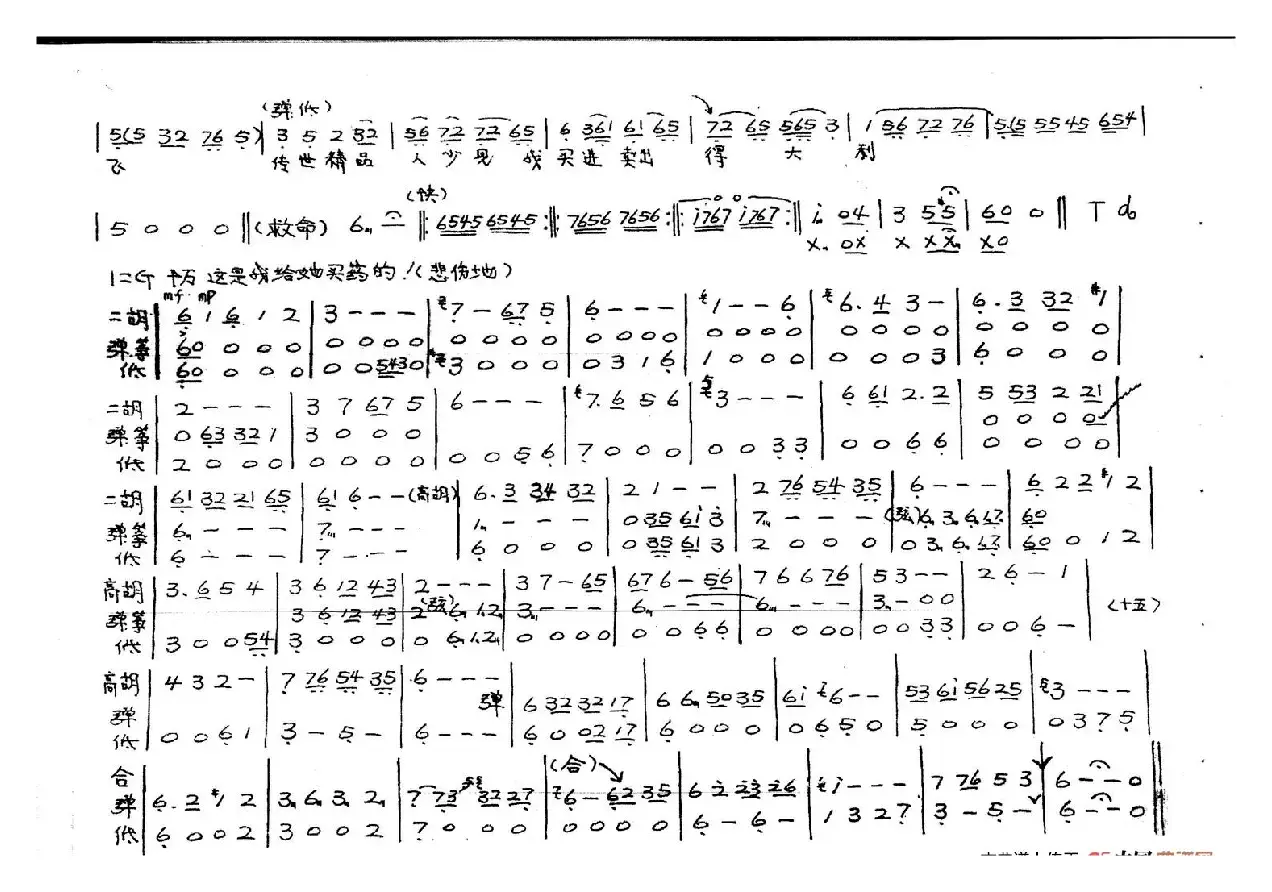 (弹低)
| 5(5 32 76 5) | 3 5 2 32 | 56 72 72 65 | 6 361 61 65 | 72 65 565 3 | 1 56 72 76 | 5(5 5545 654 |
飞 传世精品 人少见 我买进卖出 得 大 利
(快)
| 5 0 0 0 ‖ (救命) 6 - ‖: 6545 6545 :‖: 7656 7656 :‖: i767 i767 :‖ i. 04 | 3 55 | 60 0 ‖
X. 0X X XX X0
1=G 这是我给她买药的!(悲伤地)
mf mp
二胡 | 6 1 6 1 2 | 3 - - - | 7 - 67 5 | 6 - - - | 1 - - 6 | 6. 4 3 - | 6. 3 32 #1 |
弹筝 | 60 0 0 0 | 0 0 0 0 | 0 0 0 0 | 0 0 0 0 | 0 0 0 0 | 0 0 0 0 | 0 0 0 0 |
低 | 60 0 0 0 | 0 0 543 0 | 3 0 0 0 | 0 3 1 6 | 1 0 0 0 | 0 0 0 3 | 6 0 0 0 |
二胡 | 2 - - - | 3 7 67 5 | 6 - - - | 7. 6 5 6 | 3 - - - | 6 61 2. 2 | 5 53 2 21 |
弹筝 | 0 63 32 1 | 3 0 0 0 | 0 0 0 0
低 | 2 0 0 0 | 0 0 0 0 | 0 0 5 6 | 7 0 0 0 | 0 0 3 3 | 0 0 6 6 | 0 0 0 0 |
二胡 | 61 32 21 65 | 61 6 - - (高胡) | 6. 3 34 32 | 2 1 - - | 2 76 54 35 | 6 - - - | 6 2 2 #1 2 |
弹筝 | 6 - - - | 7 - - - | 1 - - - | 0 35 61 3 | 7 - - - (弦) | 6 3 6 17 | 60
低 | 6 - - - | 7 - - - | 6 0 0 0 | 0 35 61 3 | 2 0 0 0 | 0 3 6 17 | 60 0 1 2 |
高胡 | 3. 6 5 4 | 3 6 12 43 | 2 - - - | 3 7 - 65 | 67 6 - 56 | 7 6 6 76 | 5 3 - - | 2 6 - 1
弹筝 3 6 12 43 | 2 (弦) 6 12 | 3 - - - | 6 - - - | 6 - - - | 3 - 0 0 | (十五)
低 | 3 0 0 54 | 3 0 0 0 | 0 6 1 2 | 0 0 0 0 | 0 0 6 6 | 0 0 0 0 | 0 0 3 3 | 0 0 6 - |
高胡 | 4 3 2 - | 7 76 54 35 | 6 - - -
弹 弹 | 6 32 32 17 | 6 6 50 35 | 6i 6 - - | 53 6i 56 25 | 3 - - - |
低 | 0 0 6 1 | 3 - 5 - | 6 - - - | 6 0 02 17 | 6 0 0 0 | 0 6 5 0 | 5 0 0 0 | 0 3 7 5 |
合 (合)
弹 | 6. 2 #1 2 | 3 6 3 2 | 7 73 32 27 | 6 - 62 35 | 6 2 23 26 | i - - - | 7 76 5 3 | 6 - - 0 ‖
低 | 6 0 0 2 | 3 0 0 2 | 7 0 0 0 | 0 0 0 0 | 6 - 6 - | 1 3 2 7 | 3 - 5 - | 6 - - 0 ‖